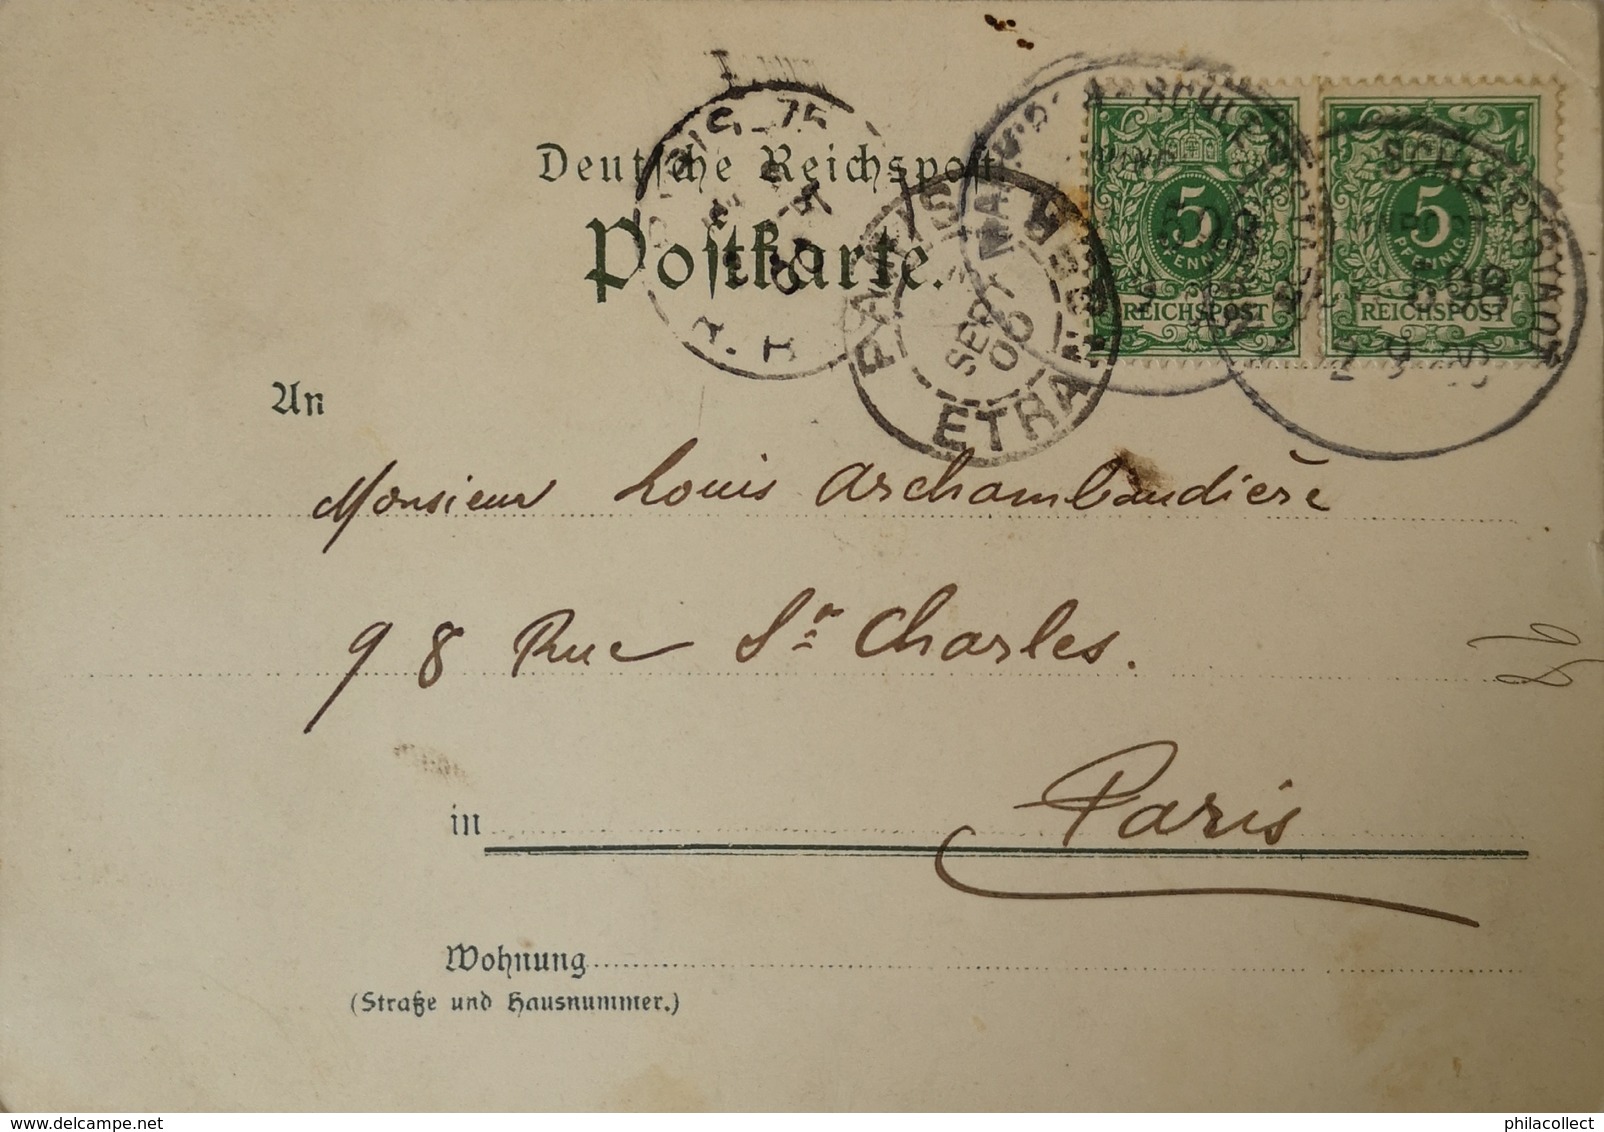 Deutsche Reichspost
Postkarte.
PARIS
ETRANGER
SEPT
00
SCHLETTSTADT
5
PFENNIG
REICHSPOST
5
PFENNIG
REICHSPOST
An
Monsieur Louis Archambaudière
98 Rue St Charles.
in Paris
Wohnung
(Straße und Hausnummer.)
philacollect